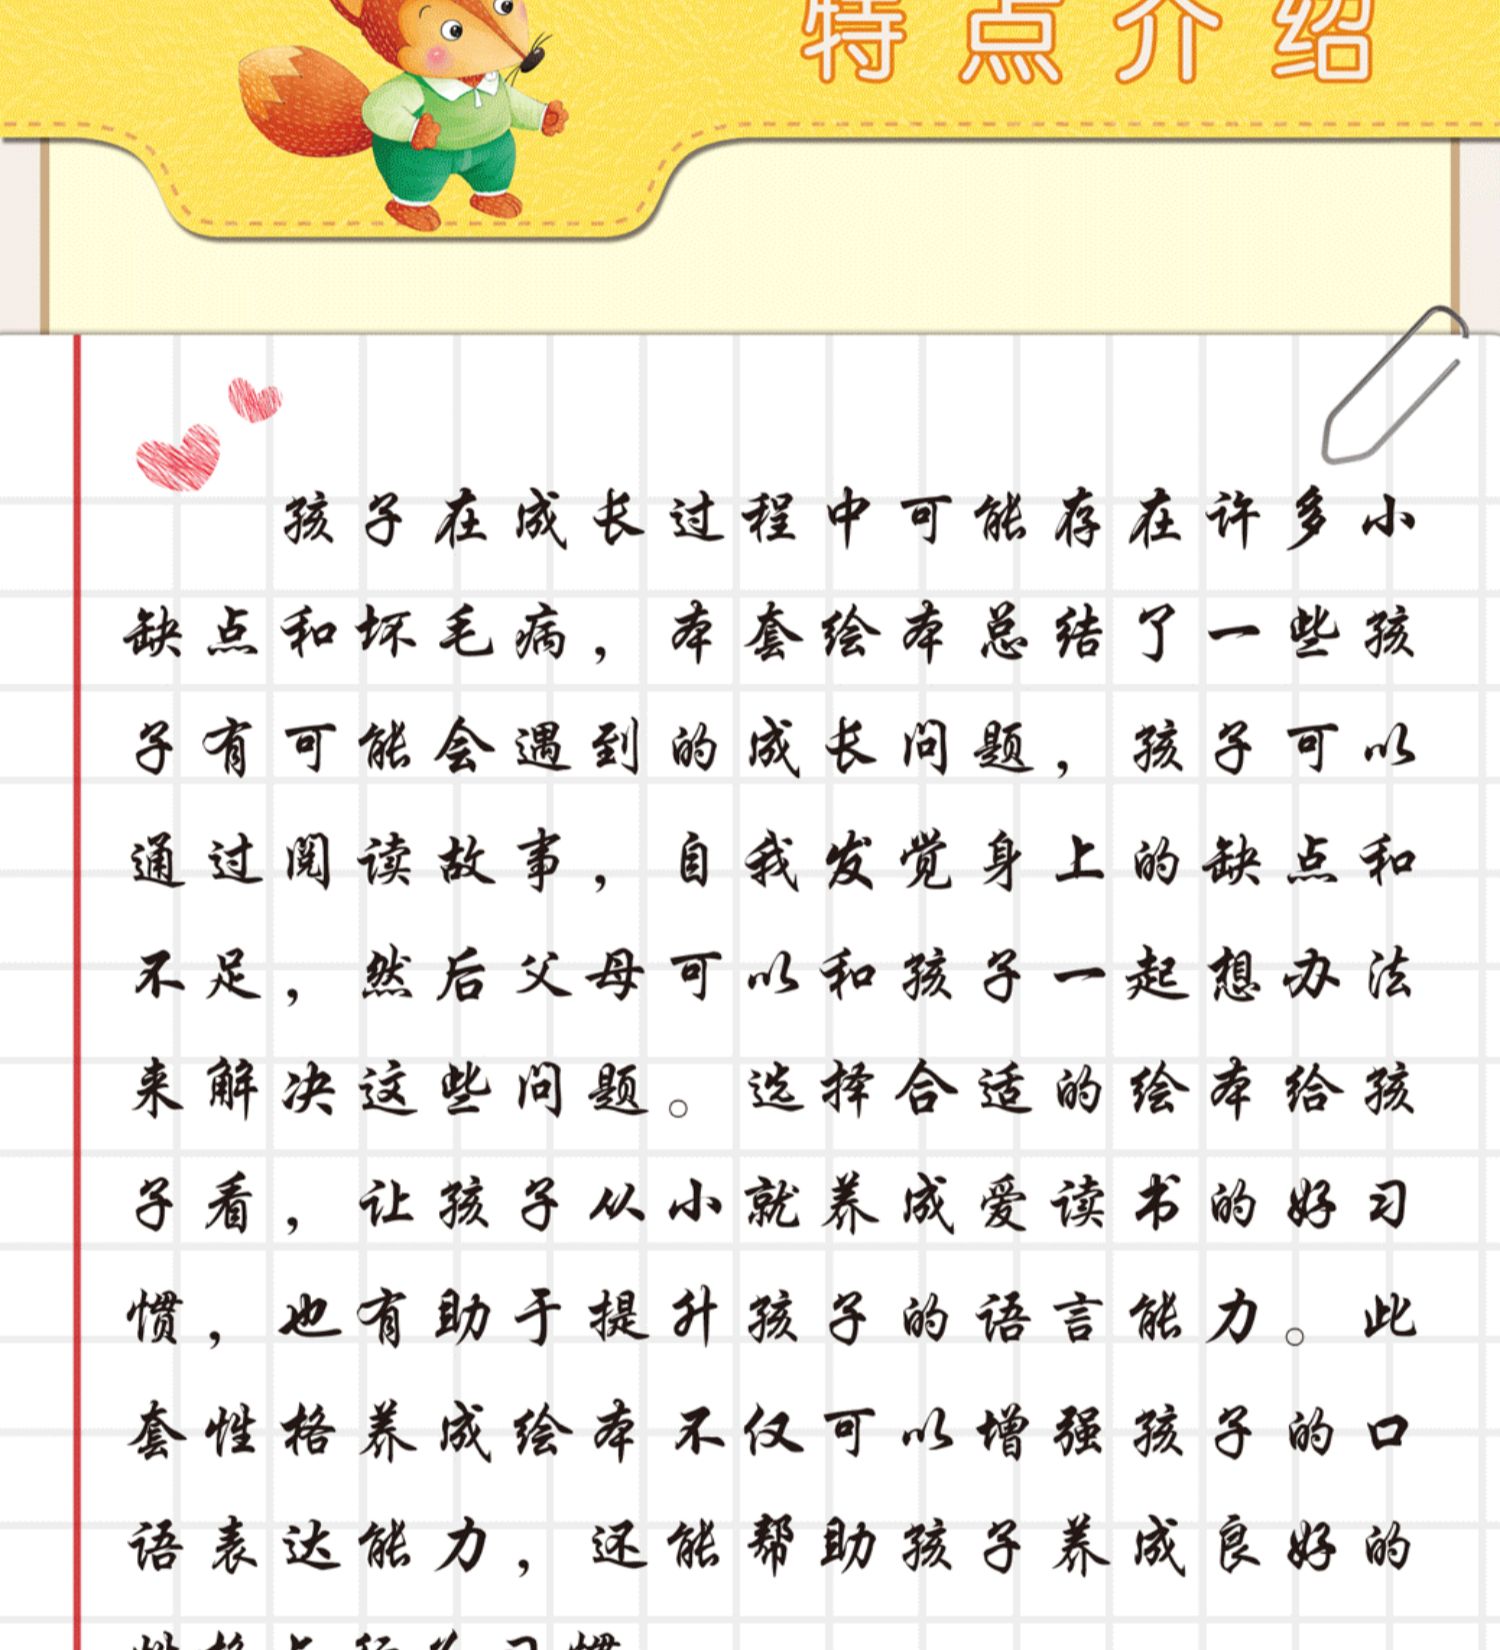 特点介绍
孩子在成长过程中可能存在许多小
缺点和坏毛病，本套绘本总结了一些孩
子有可能会遇到的成长问题，孩子可以
通过阅读故事，自我发觉身上的缺点和
不足，然后父母可以和孩子一起想办法
来解决这些问题。选择合适的绘本给孩
子看，让孩子从小就养成爱读书的好习
惯，也有助于提升孩子的语言能力。此
套性格养成绘本不仅可以增强孩子的口
语表达能力，还能帮助孩子养成良好的